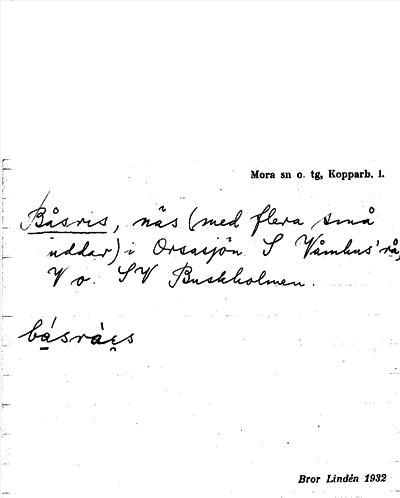 Mora sn o. tg, Kopparb. l.
Båsris, näs (med flera små
uddar) i Orsasjön S Våmhus' rå,
V o. SV Buskholmen.
básràe̯s
Bror Lindén 1932